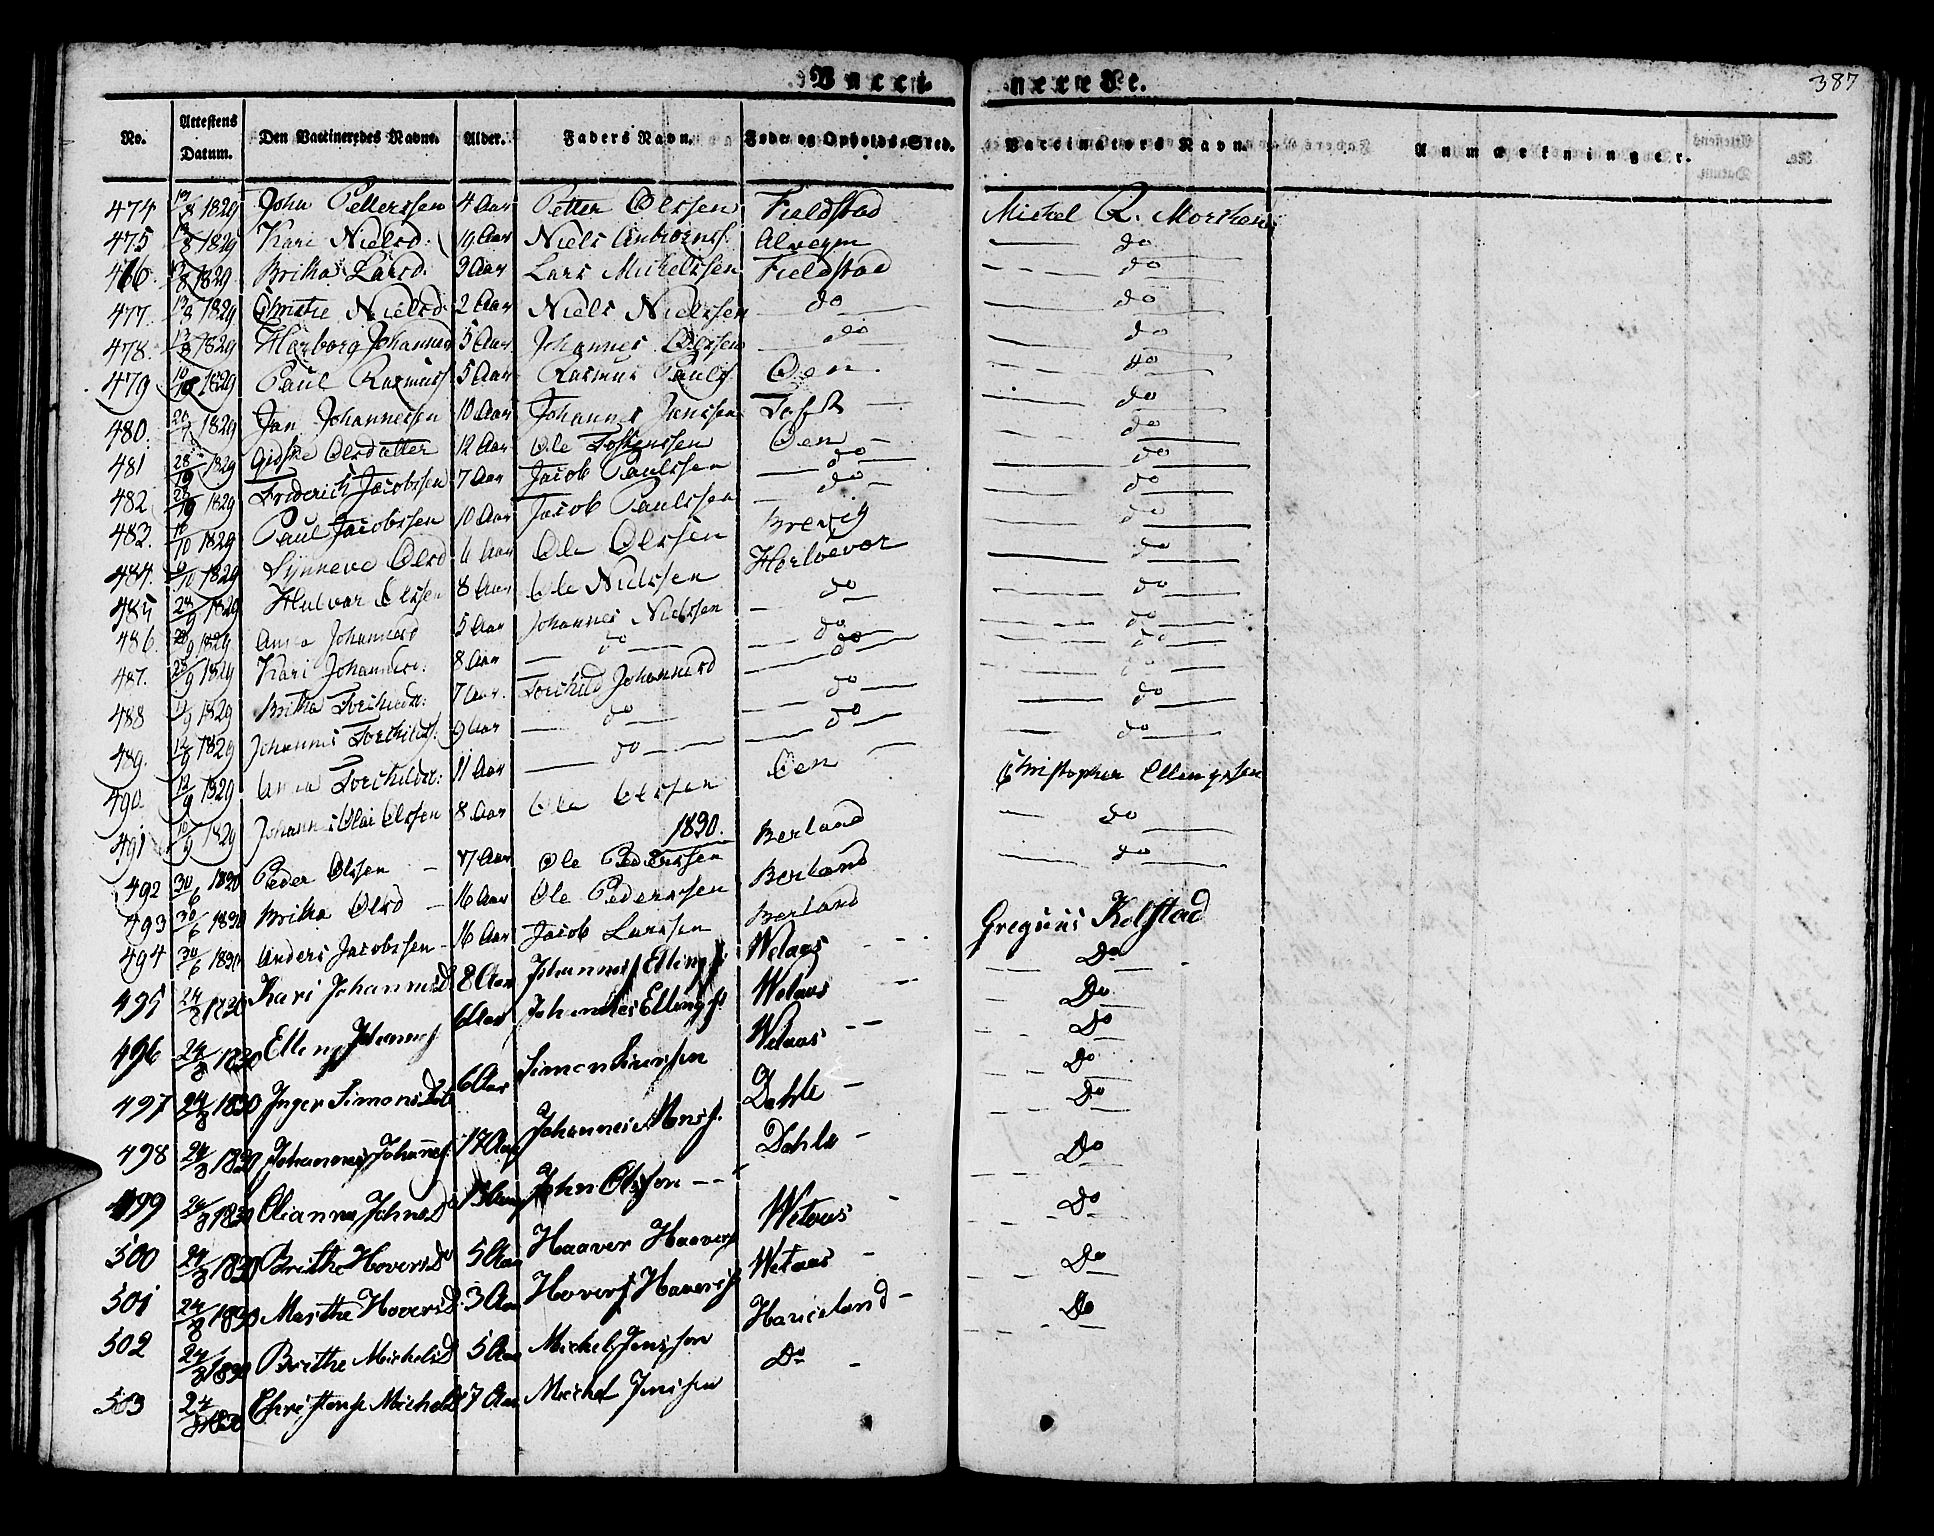 Vacci- nerede.
387
No. Attestens Datum. Den Vaccineredes Navne. Alder. Faders Navn. Føde og Opholds-Sted. Vaccinateurs Navn. Anmærkninger.
474 13/8 1829 John Petterssen 4 Aar Petter Olssen Fieldstad Michel R. Morthens
475 13/8 1829 Kari Nielsd: 19 Aar Niels Anbiørns. Alvegn do
476. 13/8 1829 Britha Larsd. 3 Aar Lars Michelssen Fieldstad do
477. 13/8 1829 Christie Nielsd 2 Aar Niels Nielssen do do
478. 13/8 1829 Herborg Johannesd 5 Aar Johannes Olssen do do
479 10/10 1829 Paul Rasmuss 5 Aar Rasmus Pauls. Øen. do
480. 1829 Jan Johannessen 10 Aar Johannes Janssen Toft do
481 28/9 1829 Gidske Olsdatter 12 Aar Ole Øen do
482. 28/9 1829 Friderich Jacobssen 7 Aar Jacob Paulssen do do
483. 10/10 1829 Paul Jacobssen 10 Aar Jacob Paulssen do do
484. 9/10 1829 Synneve Olsd 6 Aar Ole Olssen Brevig do
485 28/9 1829 Halvor Olssen 8 Aar Ole Nielssen Horlvevor do
486. 28/9 1829 Anna Johannesd 5 Aar Johannes Nielssen do do
487. 28/9 1829 Kari Johannesd. 8 Aar do do do
488 12/9 1829 Britha Torchildd. 7 Aar. Torchild Johannesd do do
489. 12/9 1829 Johannes Torchilds. 9 Aar do do do
490. 12/9 1829 Anna Torchildd: 11 Aar do do do
491 10/9 1829 Johannes Olai Olssen 8 Aar Ole Olssen Øen Christopher Ellingssen
1830.
492 30/6 1830 Peder Olssen 17 Aar Ole Pederssen Berland do
493 30/6 1830 Britha Olsd 16 Aar Ole Pederssen Berland do
494 30/6 1830 Anders Jacobssen 16 Aar Jacob Larssen Berland
495 24/8 1830 Kari Johannesd 8 Aar Johannes Ellings: Wetaas Gregius Kolstad
496 24/8 1830 Elling Johannes 6 Aar Johannes Ellings. Wetaas Do
497 24/8 1830 Inger Simonsdtr 6 Aar Simon Simonsen Wetaas Do
498 24/8 1830 Johannes Johanes. 17 Aar Johannes Mons. Dahle Do
499 24/8 1830 Olianna Johnsd 13 Aar John Olsson Dahle Do
500 24/8 1830 Brithe Hoversd 5 Aar Haaver Haavers Wetaas Do
501 24/8 1830 Marthe Hoversd 3 Aar Hovers Haavers Wetaas Do
502 24/8 1830 Brithe Michelsd 5 Aar Michel Jenssøn Haveland Do
503 24/8 1830 Christense Michelsd 17 Aar Michel Jenssen Do Do
Do
Do